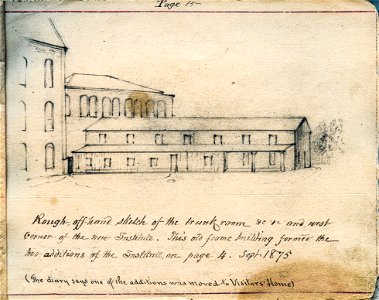 Page 15
Rough off-hand sketch of the trunk room &c &c and west
corner of the new Institute. This old frame building formed the
two additions of the Institute, on page 4. Sept. 1875
(The diary says one of the additions was moved to Visitors' Home)